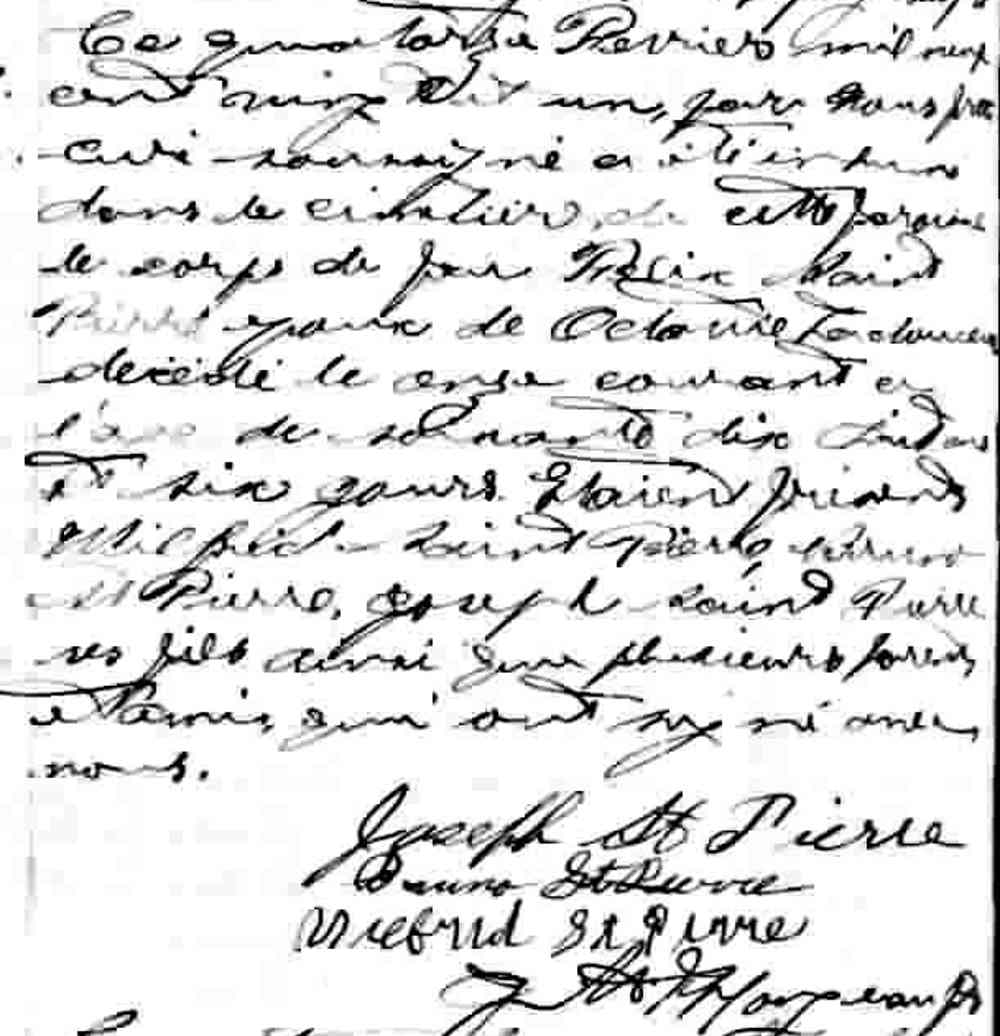 Ce quatorze Fevrier mil neuf
cent vingt et un, par nous prêtre
curé soussigné a été inhumé
dans le cimetière de cette paroisse
le corps de feu Felix Saint
Pierre epoux de Octavie
decédé le onze courant a
l'age de soixante dix huit ans
et six jours. Etaient présents
Wilfrid Saint Pierre, Bruno
St Pierre, Joseph Saint Pierre
ses fils ainsi que plusieurs parents
et amis, qui ont signé avec
nous.
Joseph St Pierre
Bruno St Pierre
Wilfrid St Pierre